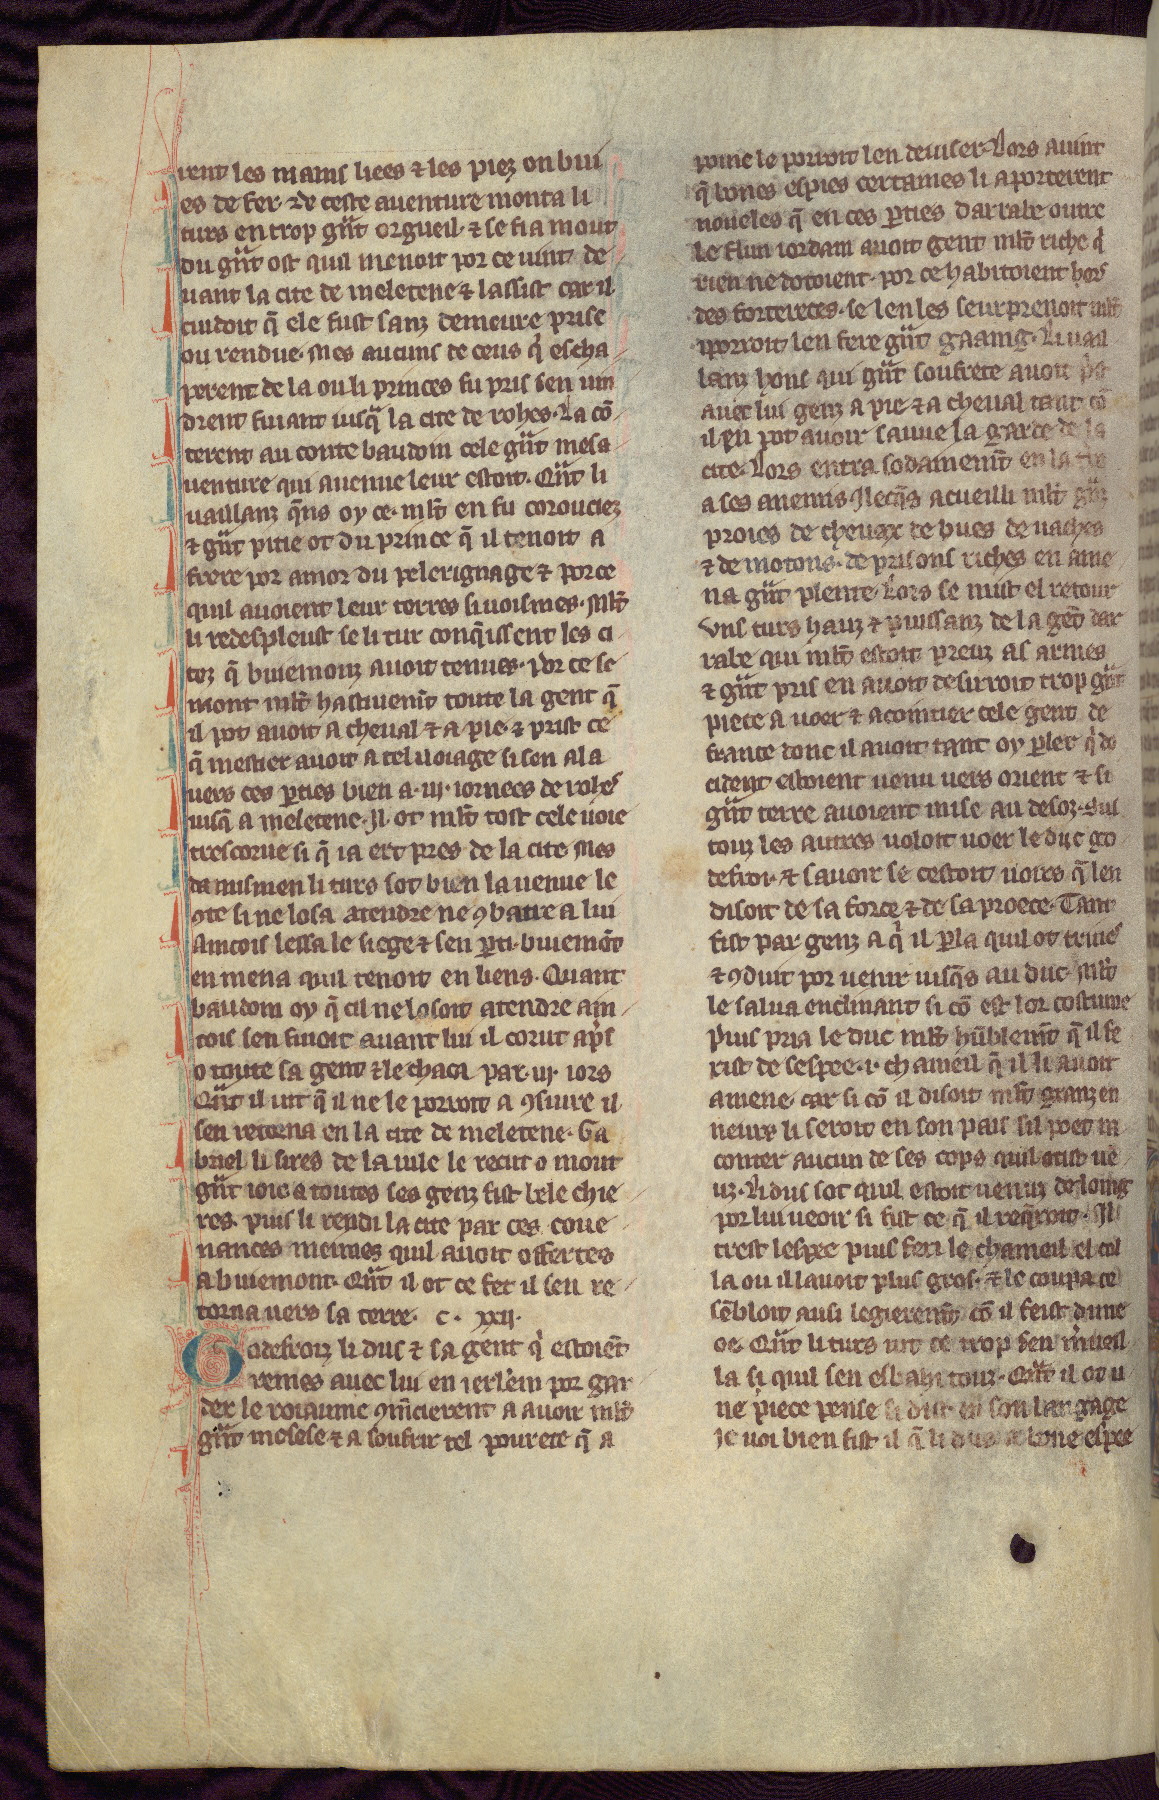 rent les mains liees ⁊ les piez on bui
es de fer. ⁊ de ceste auenture monta li
turs en trop gᵃ̈t orgueil. ⁊ se fi a mout
du gᵃ̈t ost quil menoit por ce uint de
uant la cite de meletene ⁊ lassist car il
cuidoit q̄ ele fust sanz demeure prise
ou rendue. Mes aucuns de ceus q̇ escha
perent de la ou li princes fu pris sen uin
drent fuiant iusq̄ la cite de rohes. La cō
terent au conte baudoin cele gᵃ̈t mesa
uenture qui auenue leur estoit. Qᵃ̈t li
uaillanz q̄ns oy ce. ml̄t en fu corouciez
⁊ gᵃ̈t pitie ot du prince q̄ il tenoit a
frere por amor du pelerignage ⁊ por ce
quil auoient leur terres si uoisines. Ml̄t
li redespleust se li tur conq̇issent les ci
tez q̄ buiemonz auoit tenues. Por ce se
mont ml̄t hastiuem̄t toute la gent q̄
il pot auoir a cheual ⁊ a pie. ⁊ prist ce
q̄ mestier auoit a tel uoiage si sen ala
uers ces ꝑties bien a .iij. iornees de rohes
iusq̄ a meletene. Il ot ml̄t tost cele uoie
trescorue si q̄ ia ert pres de la cite. Mes
danismen li turs sot bien la uenue le
ꝯte si ne losa atendre ne ꝯbatre a lui
aincois lessa le siege ⁊ sen ꝑti. buiemōt
en mena quil tenoit en liens. Quant
baudoin oy q̄ cil ne losoit atendre ain
cois sen finoit auant lui il corut ap̄s
o toute sa gent ⁊ le chaca par .iij. iors
Qᵃ̈t il uit q̄ il ne le porroit a ꝯsiure il
sen retorna en la cite de meletene. Ga
briel li sires de la uile le recut o mout
gᵃ̈t ioie a toutes ses genz fist bele chie
res. puis li rendi la cite par ces coue
nances meimes quil auoit offertes
a buiemont. Qᵃ̈t il ot ce fet il sen re
torna uers sa terre. c. xxij.
Godefroiz li dus ⁊ sa gent q̇ estoiēt
remes auec lui en ierl̄em por gar
der le roiaume ꝯm̄cierent a auoir ml̄t
gᵃ̈t mesese ⁊ a soufrir tel pourete q̄ a
poine le porroit len deuiser. Lors auint
q̄ bones espies certaines li aporterent
noueles q̄ en ces ꝑties darrabe outre
le flun iordain auoit gent ml̄t riche q̇
rien ne dotoient. por ce habitoient hors
des forcereces. se len les seurprenoit ml̄t
i porroit len fere gᵃ̈t gaaing. Li uail
lanz hons qui gᵃ̈t soufrete auoit p̄st
auec lui genz a pie ⁊ a cheual tant cō
il en pot auoir sauue la garde de la
cite. Lors entra sodainem̄t en la t̄re
a ses anemis. Ilecq̄s acueilli ml̄t gᵃ̈z
proies de cheuax de bues de uaches
⁊ de motons. de prisons riches en ame
na gᵃ̈t plente. Lors se mist el retour
Uns turs hauz ⁊ puissanz de la gēt dar
rabe qui ml̄t estoit preuz as armes
⁊ gᵃ̈t pris en auoit desirroit trop gᵃ̈t
piece a uoer ⁊ acointier cele gent de
france donc il auoit tant oy ꝑler q̇ do
cident estoient uenu uers orient ⁊ si
gᵃ̈t terre auoient mise au desoz. Sus
touz les autres uoloit uoer le duc go
defroi. ⁊ sauoir se cestoit uoirs q̄ len
disoit de sa force ⁊ de sa proece. Tant
fist par genz a q̇ il ꝑla quil ot triues
⁊ ꝯduit por uenir iusq̄s au duc. Ml̄t
le salua enclinant si cō est lor costume
Puis pria le duc ml̄t hūblem̄t q̄ il fe
rist de sespee .i. chameil q̄ il li auoit
amene. car si cō il disoit ml̄t granz en
neurs li seroit en son pais sil poet ra
conter aucun de ses cops quil eust ue
uz. Li dus sot quil estoit uenuz de loing
por lui ueoir si fist ce q̄ il req̄roit. Il
trest lespee puis feri le chameil el col
la ou il lauoit plus gros. ⁊ le coupa ce
sēbloit ausi legierem̄t cō il feist dune
oe. Qᵃ̈t li turs uit ce trop sen m̄ueil
la si quil sen esbahi touz. Qᵃ̈t il ot u
ne piece pense si dist en son langage
Je uoi bien fist il q̄ li dus a bone espee